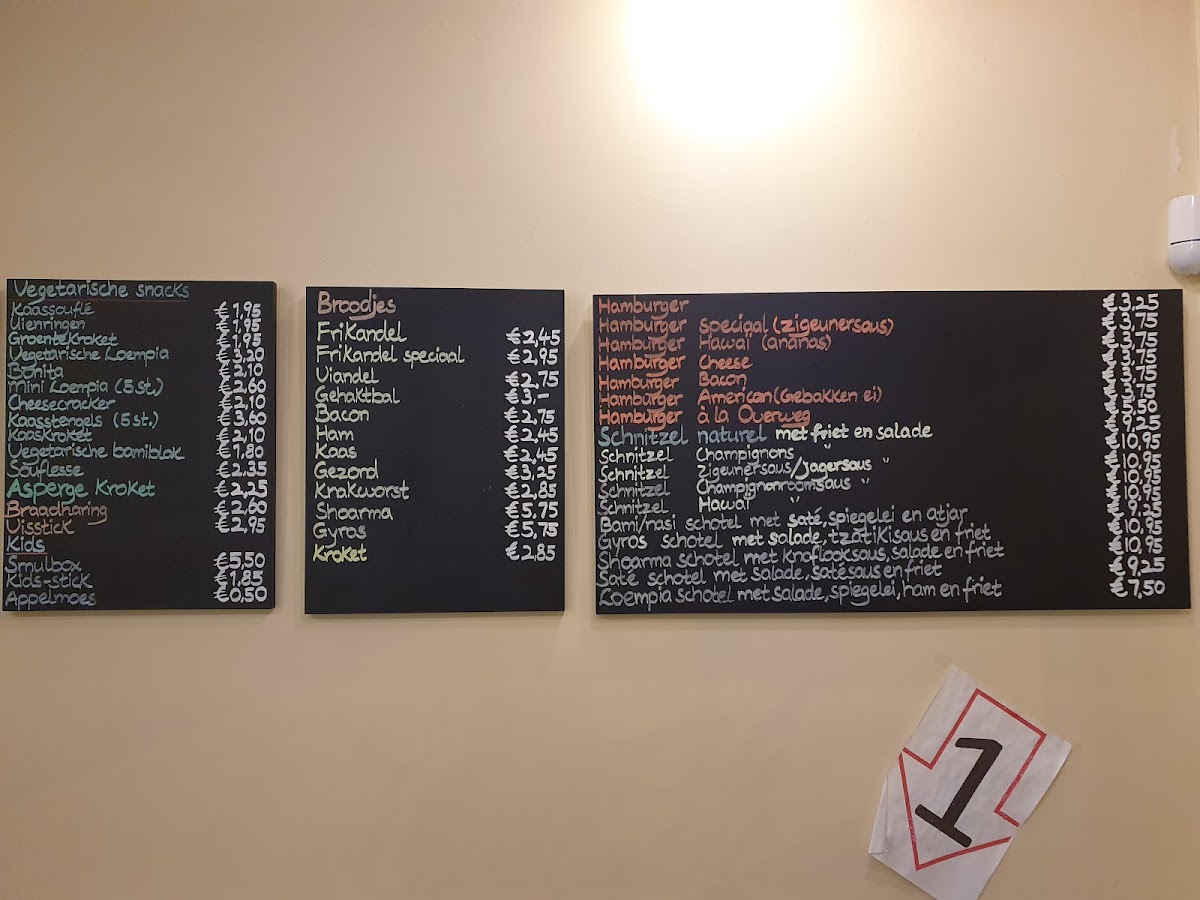 Vegetarische snacks
Kaassouflé €1,95
Uienringen €1,95
Groentekroket €1,95
Vegetarische Loempia €3,20
Bonita €2,10
Mini Loempia (5 st.) €2,60
Cheesecracker €2,10
Kaasstengels (5 st.) €3,60
Kaaskroket €2,10
Vegetarische bamiblok €1,80
Souflesse €2,35
Asperge Kroket €2,25
Braadharing €2,60
Visstick €2,95
Kids
Smulbox €5,50
Kids-stick €1,85
Appelmoes €0,50
Broodjes
Frikandel €2,45
Frikandel speciaal €2,95
Viandel €2,75
Gehaktbal €3,-
Bacon €2,75
Ham €2,45
Kaas €2,45
Gezond €3,25
Knakworst €2,85
Shoarma €5,75
Gyros €5,75
Kroket €2,85
Hamburger €3,25
Hamburger speciaal (zigeunersaus) €3,75
Hamburger Hawaï (ananas) €3,75
Hamburger Cheese €3,75
Hamburger Bacon €3,75
Hamburger American (Gebakken ei) €3,75
Hamburger à la Overweg €5,50
Schnitzel naturel met friet en salade €9,25
Schnitzel Champignons " €10,95
Schnitzel Zigeunersaus/Jagersaus " €10,95
Schnitzel Champignonroomsaus " €10,95
Schnitzel Hawaï " €10,95
Bami/nasi schotel met saté, spiegelei en atjar €9,25
Gyros schotel met salade, tzatikisaus en friet €10,95
Shoarma schotel met knoflooksaus, salade en friet €10,95
Saté schotel met salade, satésaus en friet €9,25
Loempia schotel met salade, spiegelei, ham en friet €7,50
1